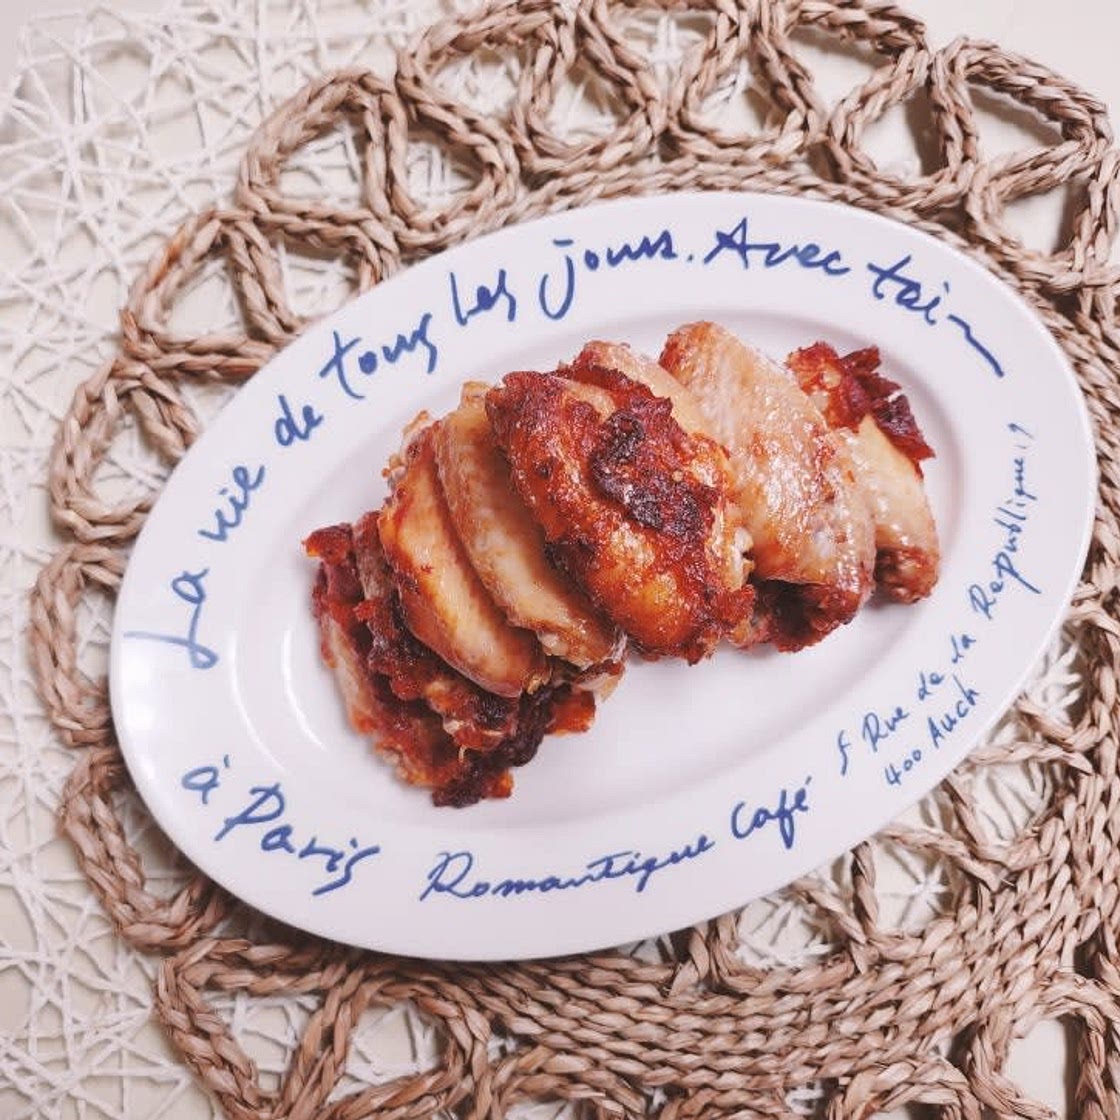 La vie de tous les jours. Avec toi~
à Paris
Romantique Café
5 Rue de la Republique
400 Auch